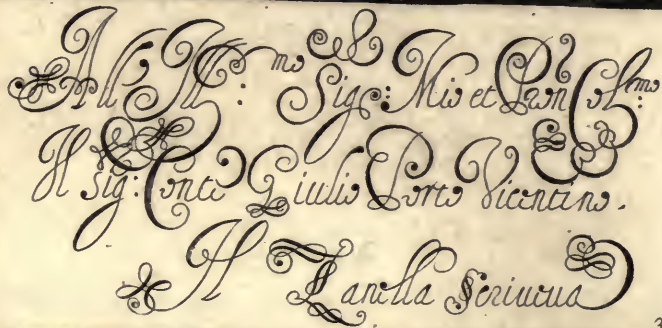 All' Ill:mo Sigr: Mio et Pron Col:mo
Il sig: Conte Giulio Porto Vicentino.
Il Zanella scriueua